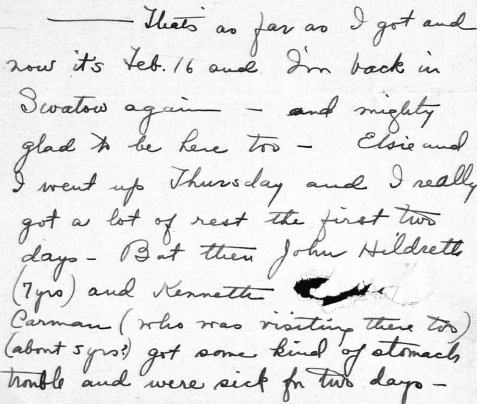 —— Thats as far as I got and
now it's Feb. 16 and I'm back in
Swatow again — and mighty
glad to be here too — Elsie and
I went up Thursday and I really
got a lot of rest the first two
days — But then John Hildreth
(7yrs) and Kenneth
Carman (who was visiting there too)
(about 5 yrs?) got some kind of stomach
trouble and were sick for two days —